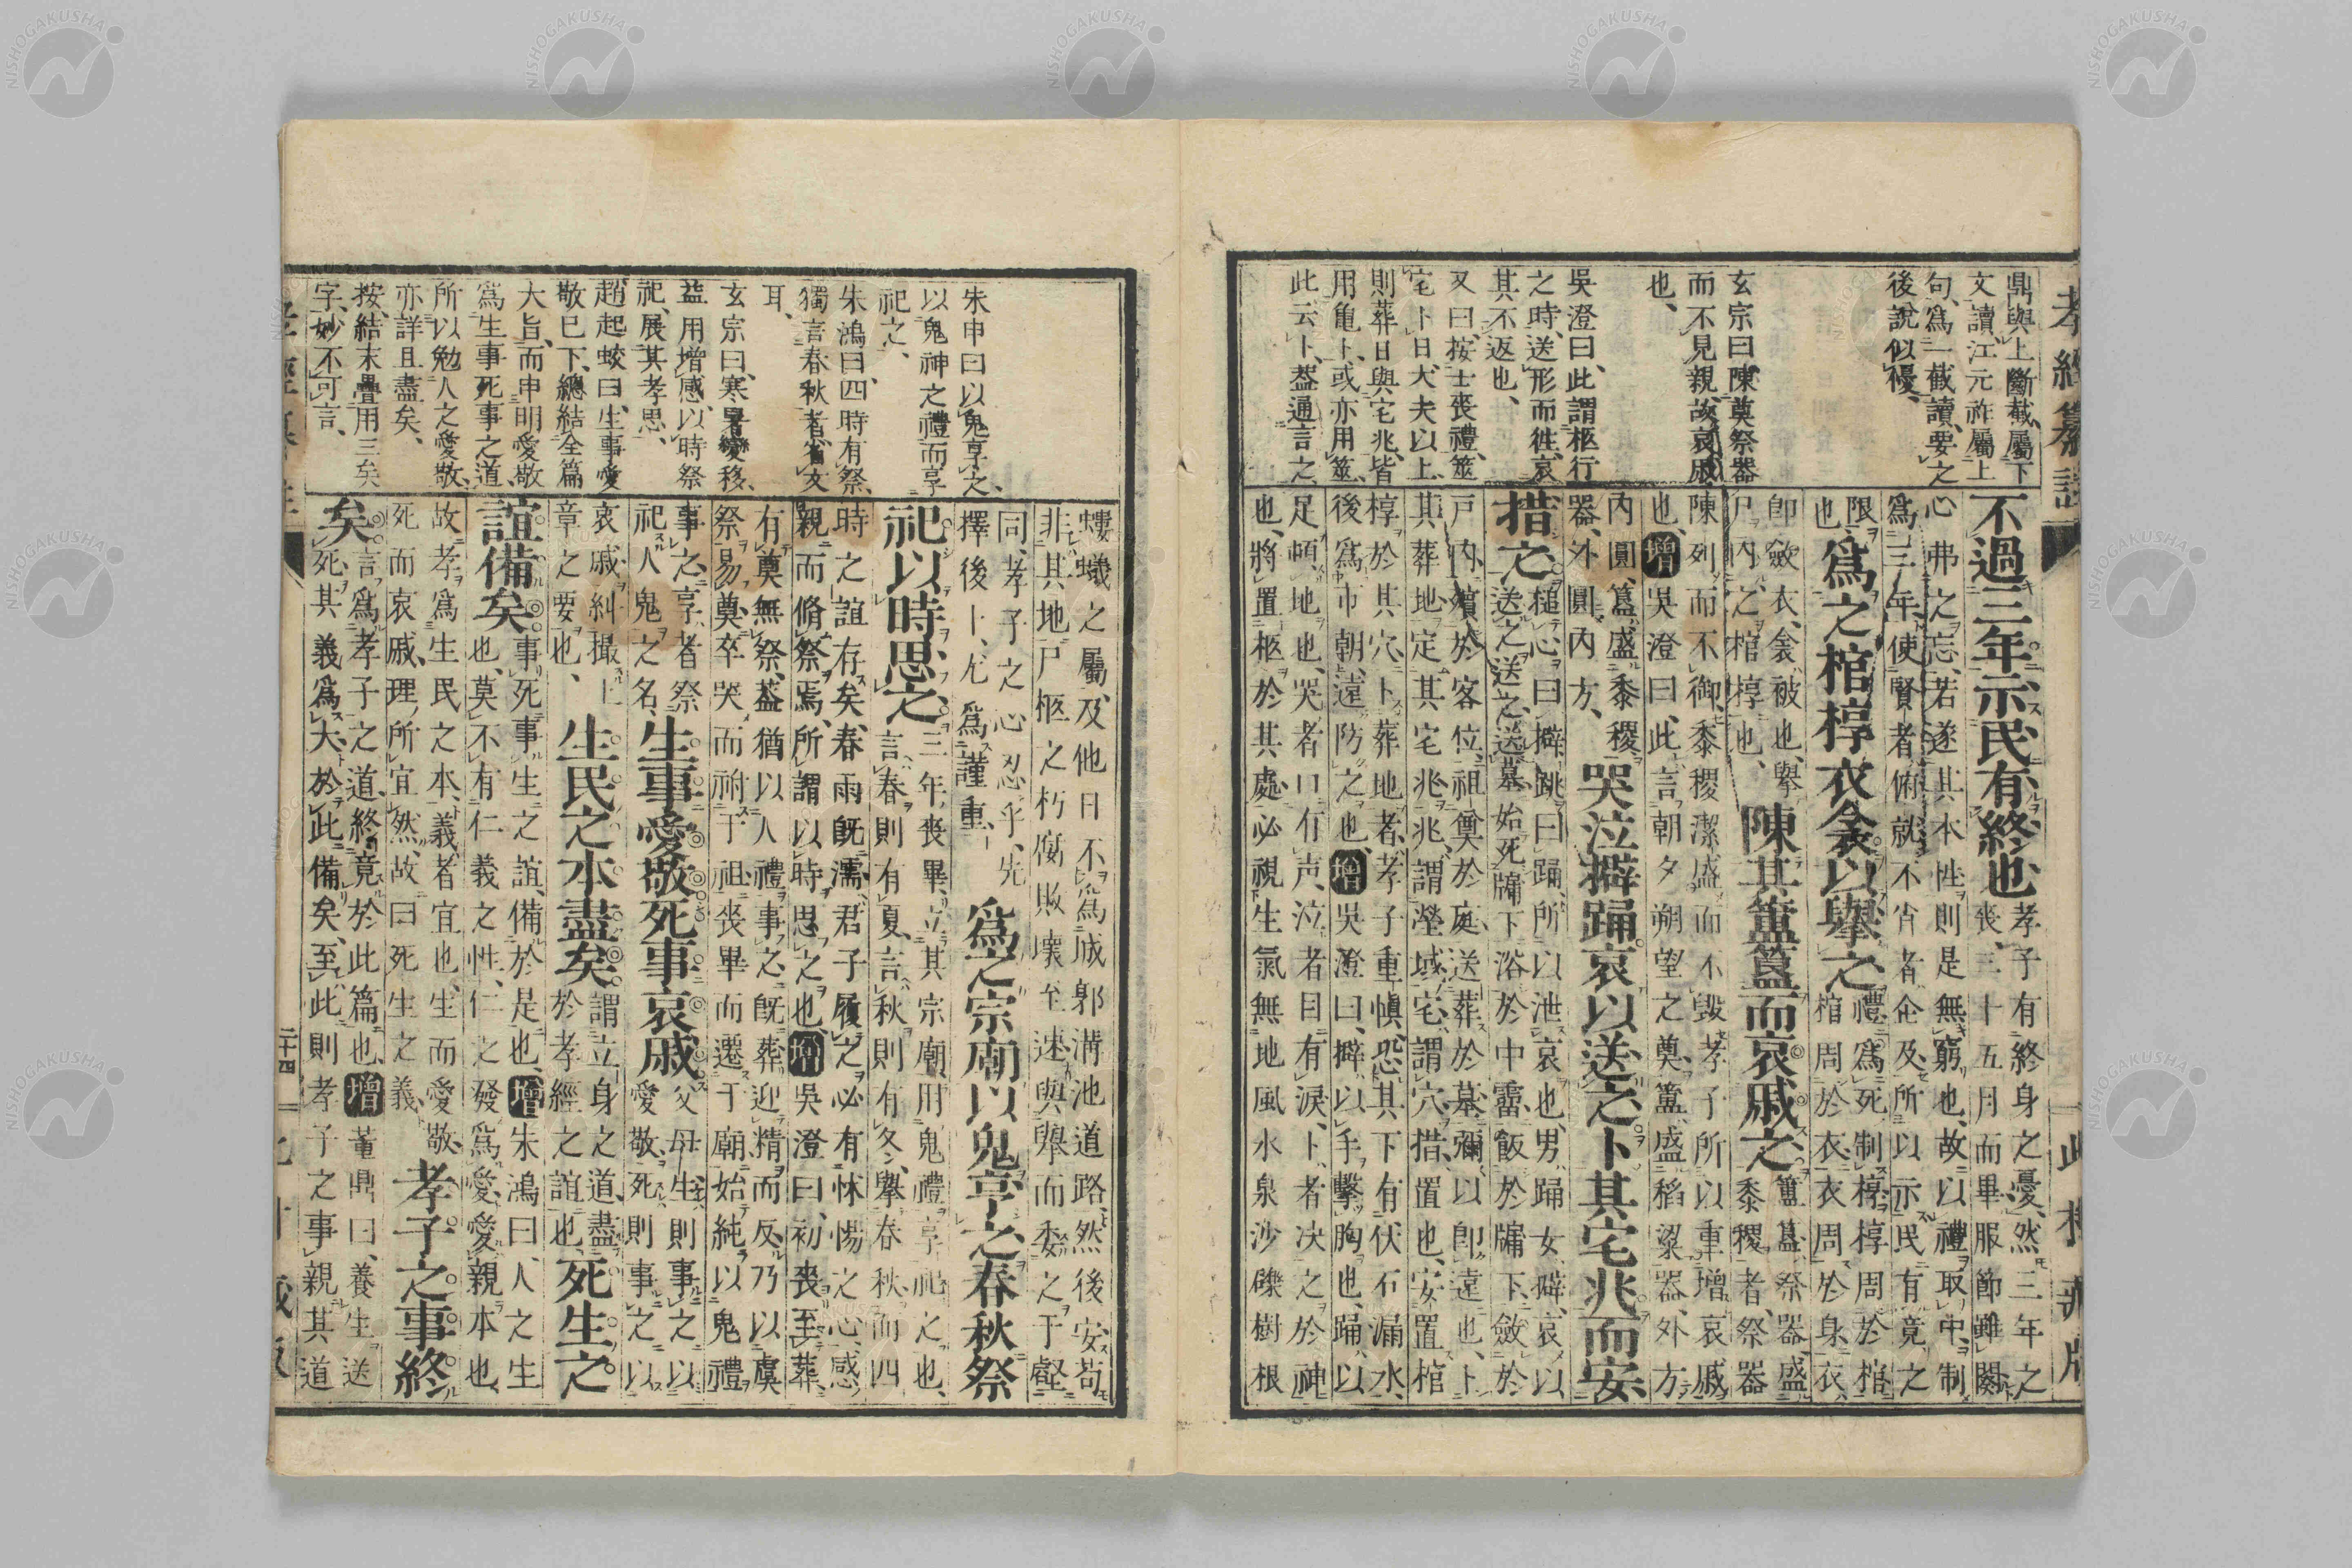 鼎與上斷截屬下
文讀江元祚屬上
句爲一截讀要之
後說似優
玄宗曰陳奠祭器
而不見親故哀戚
也
吳澄曰此謂柩行
之時送形而徃哀
其不返也
又曰按士喪禮筮
宅卜日大夫以上
則葬日與宅兆皆
用亀卜或亦用筮
此云卜葢通言之
不過三年示民有終也
孝子有終身之憂然三年之
喪三十五月而畢服節雖闋
心弗之忘若遂其本性則是無窮也故以禮取中制
爲三年使賢者俯就不肖者企及所以示民有竟之
限
也
爲之棺椁衣衾以擧之
禮爲死制椁椁周於棺
棺周於衣衣周於身衣
卽斂衣衾被也擧
尸內之棺椁也
陳其簠簋而哀戚之
簠簋祭器盛
黍稷者祭器
陳列而不御黍稷潔盛而不毀孝子所以重增哀戚
也增吳澄曰此言朝夕朔望之奠簠盛稻粱器外方
內圓簋盛黍稷
器外圓內方
哭泣擗踊哀以送之卜其宅兆而安
措之
搥心曰擗跳曰踊所以泄哀也男踊女擗哀以
送之送之送墓始死牖下浴於中霤飯於牖下斂於
戶內殯於客位祖奠於庭送葬於墓彌以卽遠也卜
其葬地定其宅兆兆謂塋域宅謂穴措置也安置棺
椁於其穴卜葬地者孝子重愼恐其下有伏石漏水
後爲市朝遠防之也增吳澄曰擗以手擊胸也踊以
足頓地也哭者口有声泣者目有淚卜者决之於神
也將置柩於其處必視生氣無地風水泉沙礫樹根
朱申曰以鬼享之
以鬼神之禮而享
祀之
朱鴻曰四時有祭
獨言春秋者省文
耳
玄宗曰寒暑變移
益用增感以時祭
祀展其孝思
趙起蛟曰生事愛
敬已下總結全篇
大旨而申明愛敬
爲生事死事之道
所以勉人之愛敬
亦詳且盡矣
按結末疊用三矣
字妙不可言
螻蟻之屬及他日不爲城郭溝池道路然後安苟
非其地尸柩之朽腐敗壞至速與擧而委之于壑
同孝子之心忍乎先
擇後卜尤爲謹重
爲之宗廟以鬼享之春秋祭
祀以時思之
三年喪畢立其宗廟用鬼禮享祀之也
言春則有夏言秋則有冬擧春秋而四
時之誼存矣春雨旣濡君子履之必有怵惕之心感
親而脩祭焉所謂以時思之也增吳澄曰初喪至葬
有奠無祭葢猶以人禮事之旣葬迎精而反乃以虞
祭易奠卒哭而祔于祖喪畢而遷于廟始純以鬼禮
事之享者祭
祀人鬼之名
生事愛敬死事哀戚
父母生則事之以
愛敬死則事之以
哀戚糾撮上
章之要也
生民之本盡矣
謂立身之道盡
於孝經之誼也
死生之
誼備矣
事死事生之誼備於是也增朱鴻曰人之生
也莫不有仁義之性仁之發爲愛愛親本也
故孝爲生民之本義者宜也生而愛敬
死而哀戚理所宜然故曰死生之義
孝子之事終
矣
言爲孝子之道終竟於此篇也增董鼎曰養生送
死其義爲大於此備矣至此則孝子之事親其道
二十四